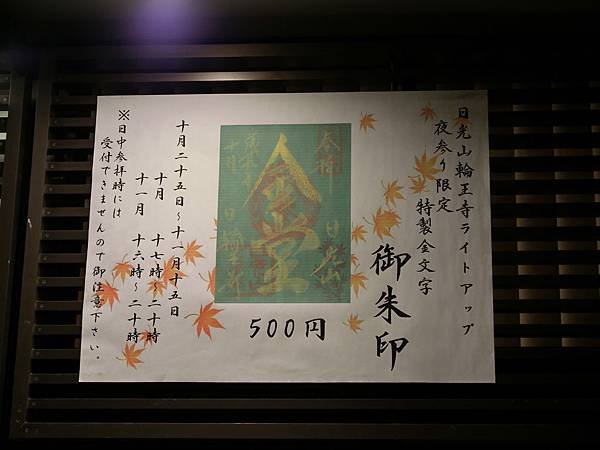 日光山輪王寺ライトアップ
夜参り限定
特製金文字
御朱印
奉拝
日光山
金堂
十月
500円
十月二十五日～十一月十五日
十月 十七時～二十時
十一月 十六時～二十時
※日中参拝時には
受付できませんので御注意下さい。